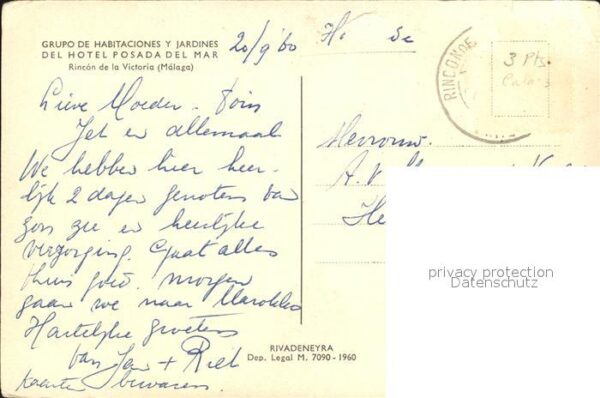 GRUPO DE HABITACIONES Y JARDINES
DEL HOTEL POSADA DEL MAR
Rincón de la Victoria (Málaga)
20/9 '60
3 Pts.
RINCON DE
Lieve Moeder -
Jet en allemaal
We hebben hier heer-
lijk 2 dagen genoten van
zon zee en heerlijke
verzorging. Gaat alles
thuis goed. Morgen
gaan we naar Marokko
Hartelijke groeten
van Jan + Riet
kaarten bewaren.
Mevrouw.
A. v
He
privacy protection
Datenschutz
RIVADENEYRA
Dep. Legal M. 7090 - 1960